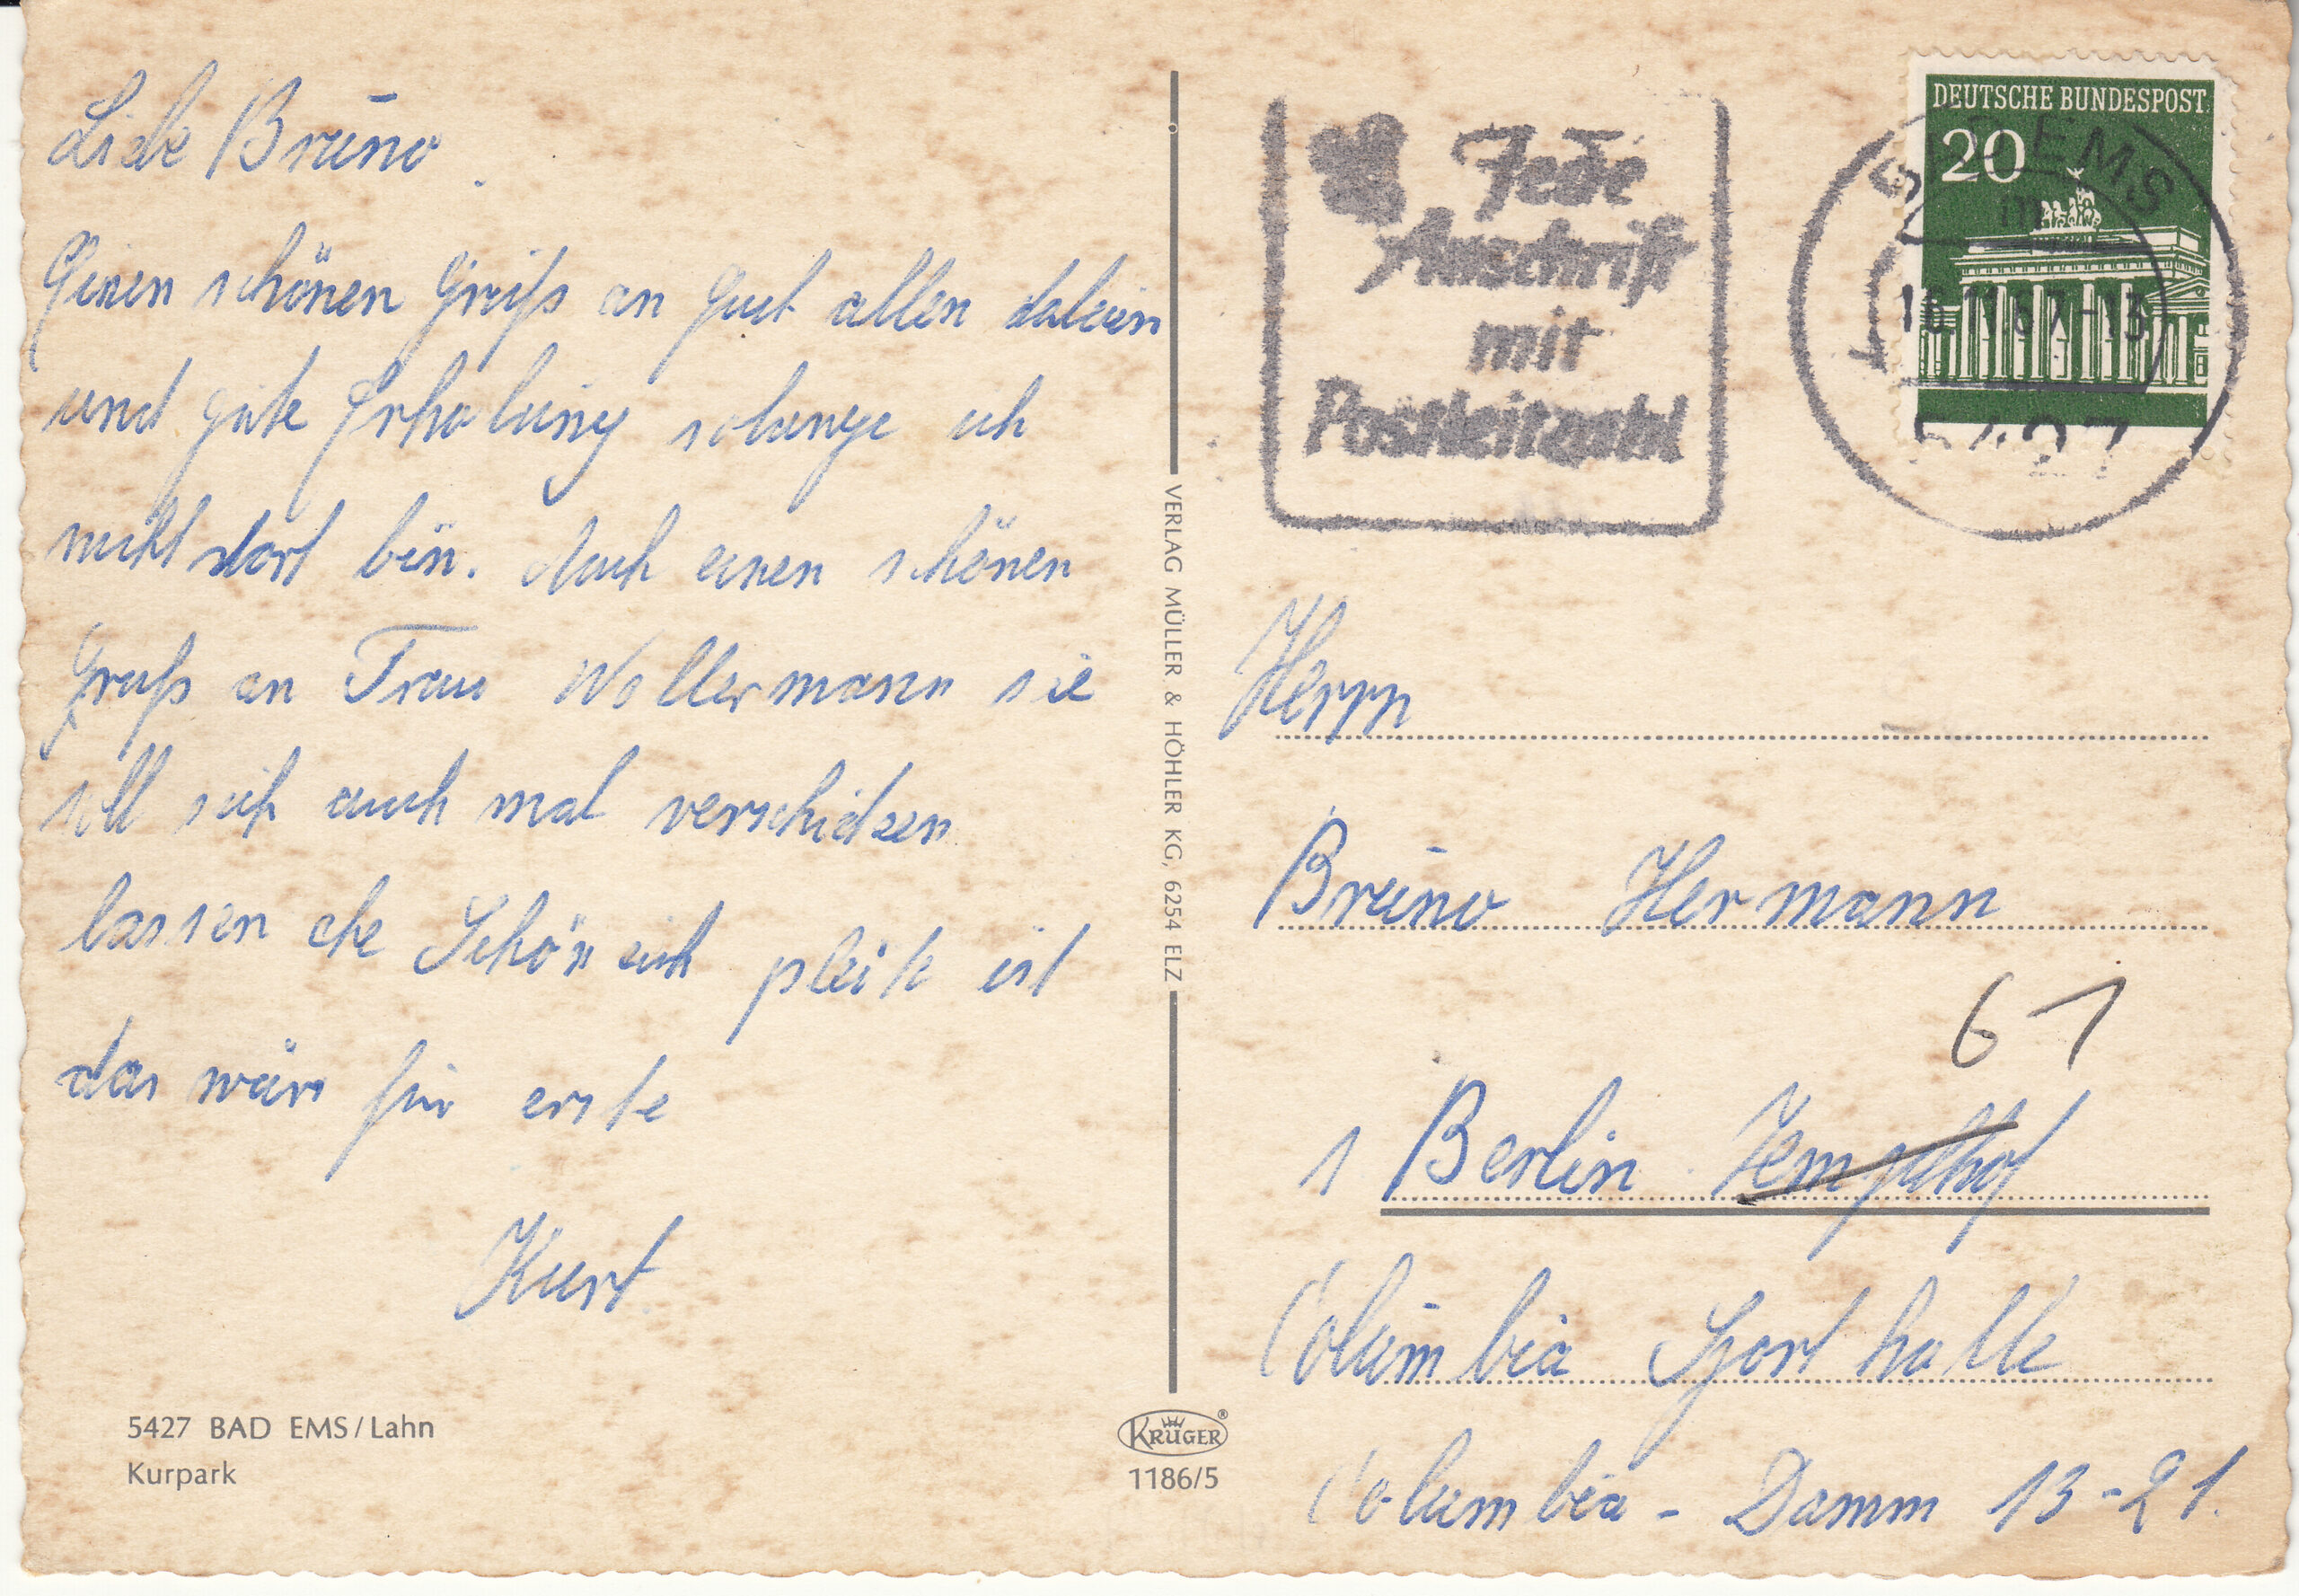 Liebe Bruno
Einen schönen Gruß an Euch allen daheim
und gute Erholung solange ich
nicht dort bin. Auch einen schönen
Gruß an Frau Wollermann sie
soll sich auch mal verschicken
lassen ehe pleite ist
das wärs für erste
Kurt
5427 BAD EMS/Lahn
Kurpark
VERLAG MÜLLER & HÖHLER KG, 6254 ELZ
KRÜGER®
1186/5
Jede
Anschrift
mit
Postleitzahl
DEUTSCHE BUNDESPOST
20
BAD EMS
16.11.67-13
5427
Herrn
Bruno Hermann
61
1 Berlin Tempelhof
Columbia Sporthalle
Columbia-Damm 13-21.